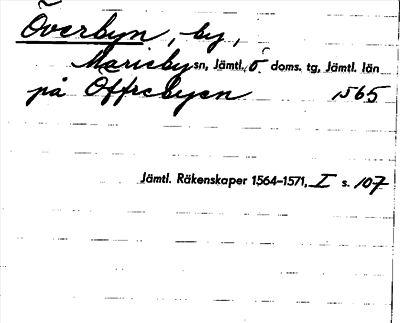 Överbyn, by,
Marieby sn, Jämtl. ö doms. tg, Jämtl. län
på Öffrebyen 1565
Jämtl. Räkenskaper 1564–1571, I s. 107